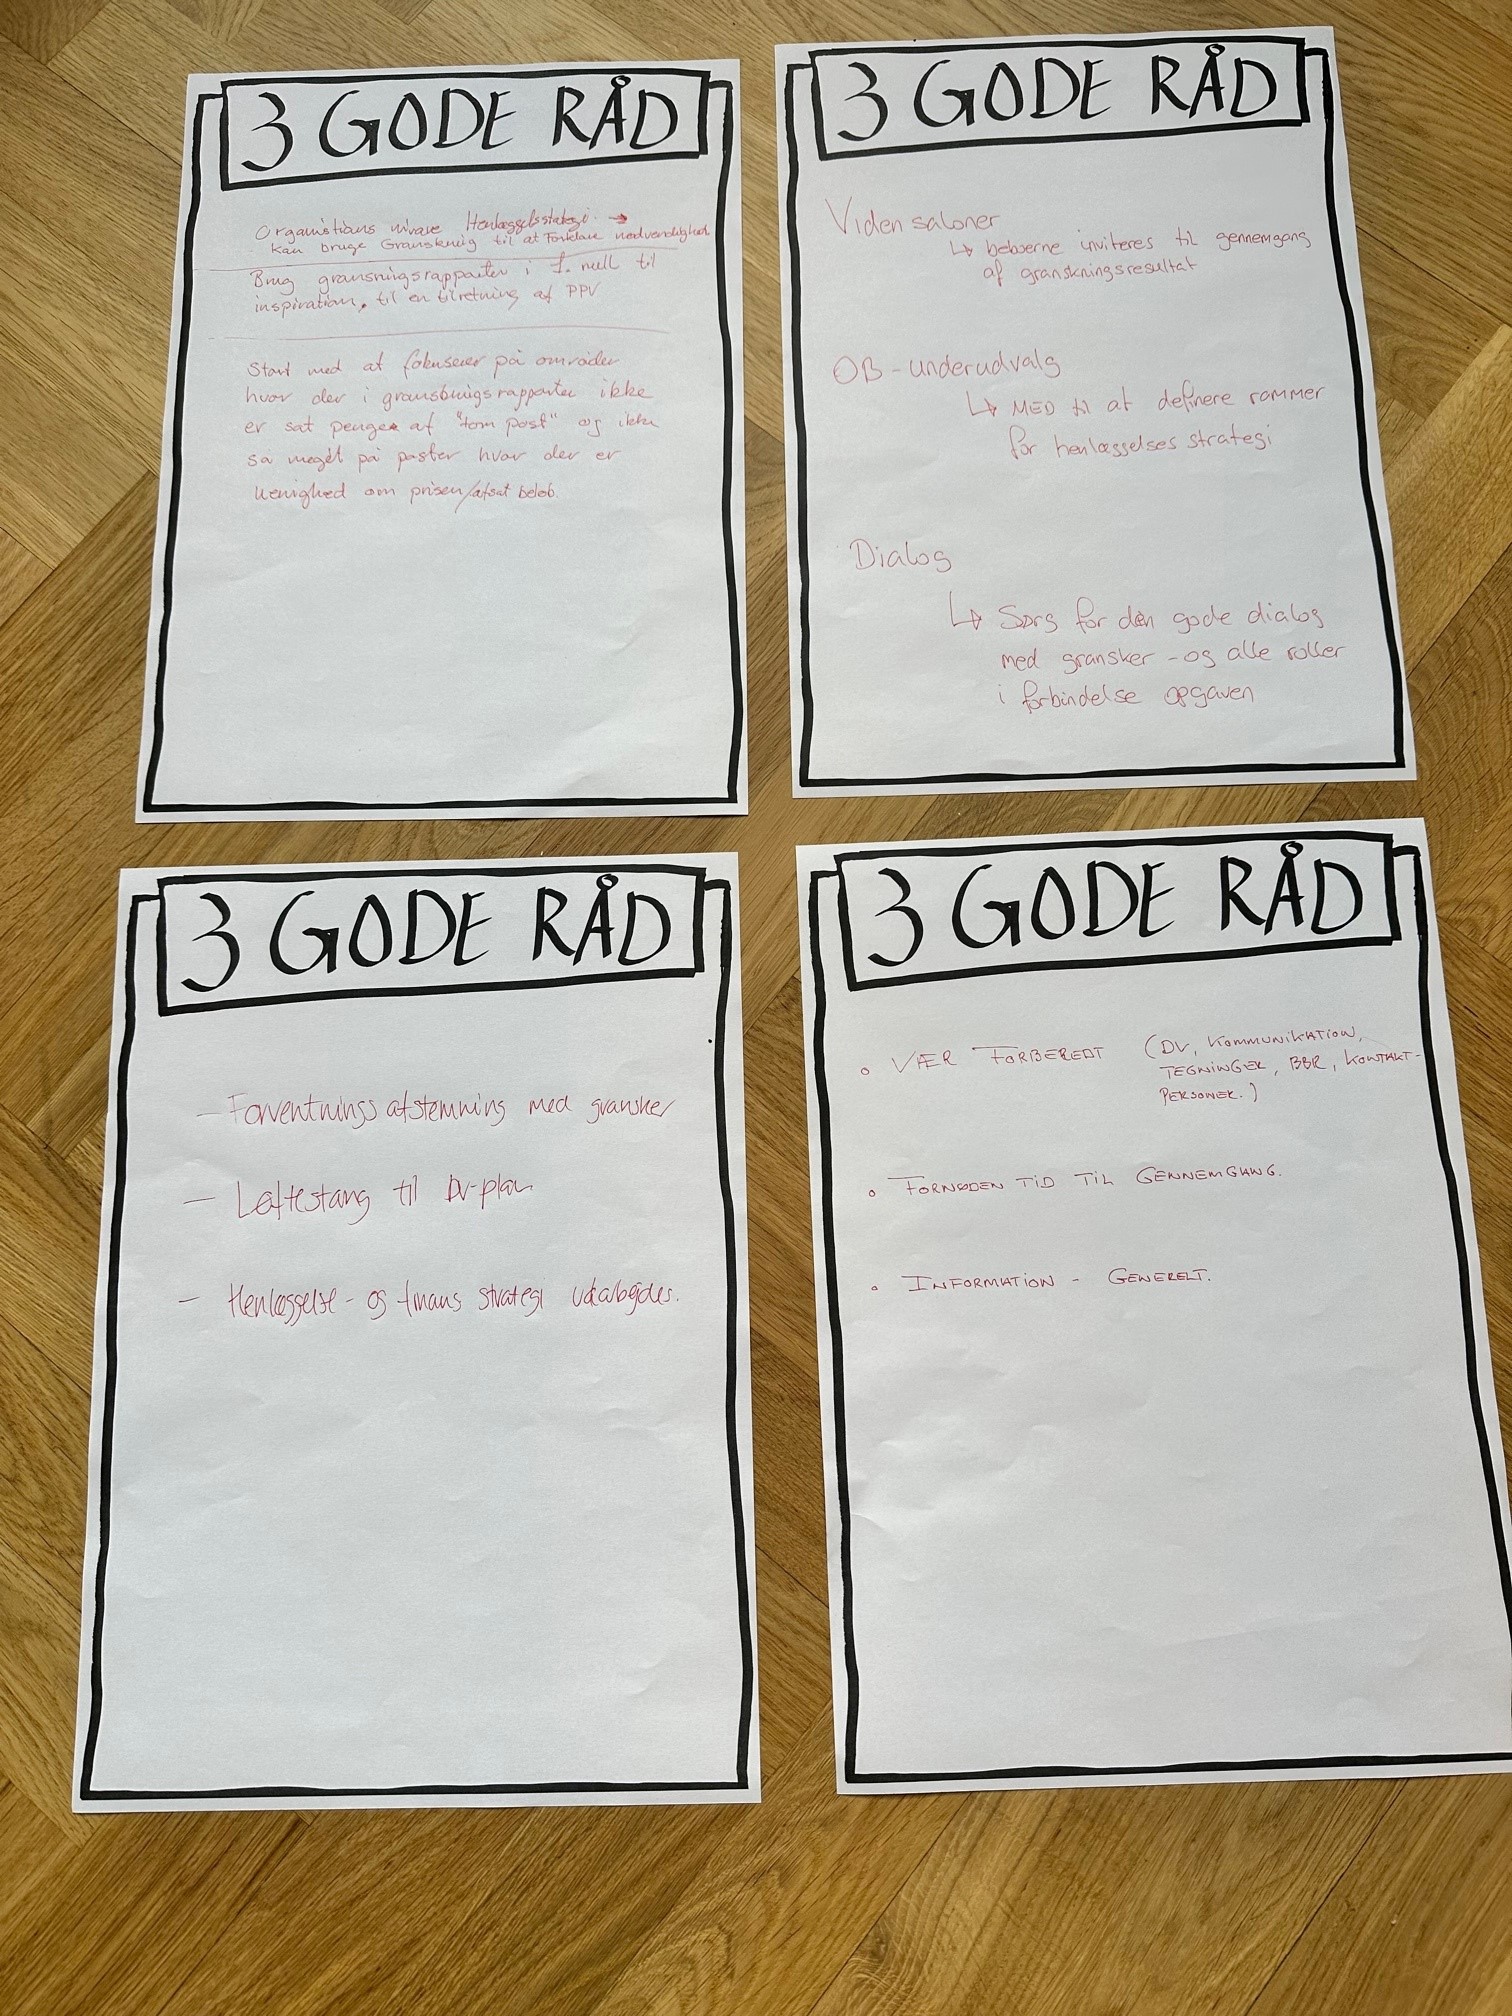 3 GODE RÅD
Organistions nivaue Henlæggelsstategi. →
kan bruge Granskning til at Forklare nødvendighed
Brug gransningsrapporter i 1. rull til
inspiration, til en tilretning af PPV
Start med at fokuserer på områder
hvor der i gransknigsrapporter ikke
er sat penge af "tom post" og ikke
så meget på poster hvor der er
Uenighed om prisen/afsat beløb.
3 GODE RÅD
Viden saloner
↳ beboerne inviteres til gennemgang
af granskningsresultat
OB-underudvalg
↳ MED til at definere rammer
for henlæggelses strategi
Dialog
↳ Sørg for den gode dialog
med gransker - og alle roller
i forbindelse opgaven
3 GODE RÅD
- Forventnings afstemning med gransker
- Løftestang til DV-plan
- Henlæggelse- og finans strategi udarbejdes.
3 GODE RÅD
• VÆR FORBEREDT (DV, KOMMUNIKATION,
TEGNINGER, BBR, KONTAKT-
PERSONER.)
• FORNØDEN TID TIL GENNEMGANG.
• INFORMATION - GENERELT.